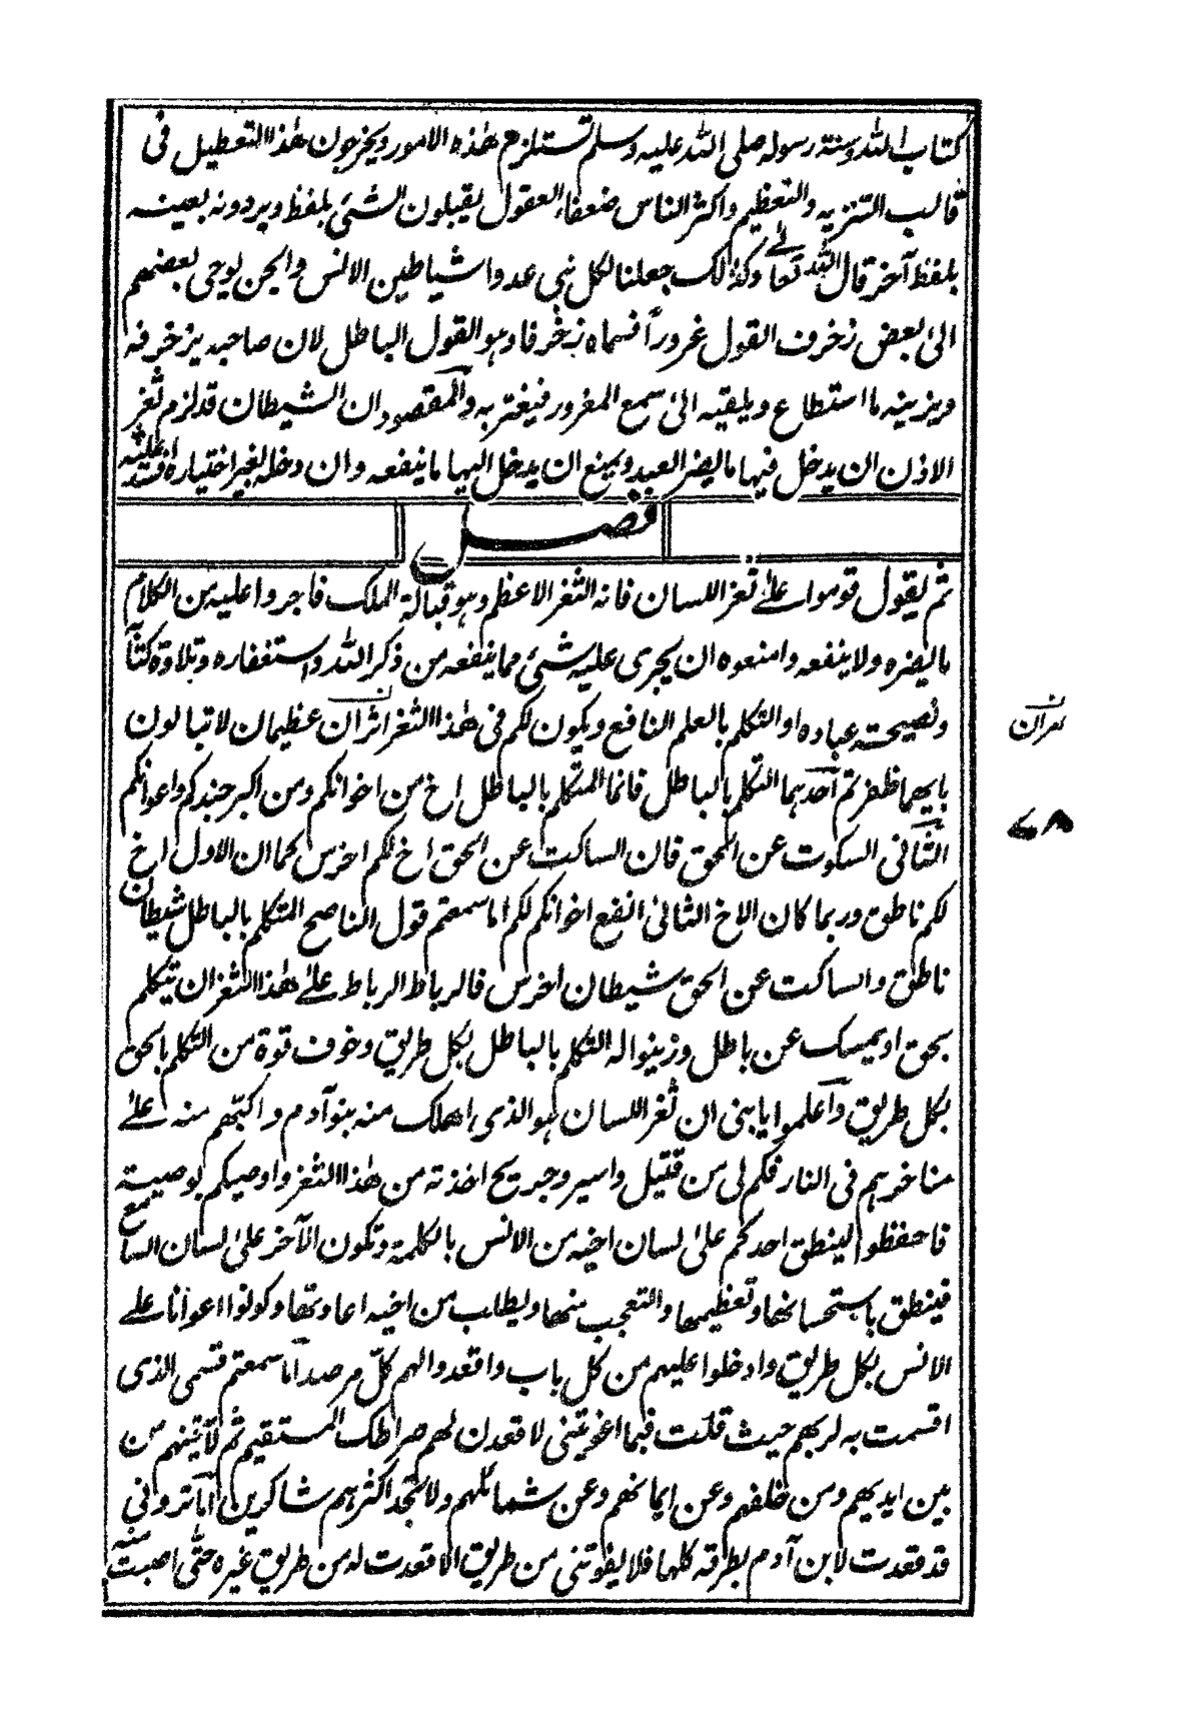 كتاب الله وسنة رسوله صلى الله عليه وسلم تستلزم هذه الامور ويخرجون هذا التعطيل فى
قالب التنزيه والتعظيم واكثر الناس ضعفاء العقول يقبلون الشئ بلفظ ويردونه بعينه
بلفظ آخر قال الله تعالى وكذالك جعلنا لكل نبى عدوا شياطين الانس والجن يوحى بعضهم
الى بعض زخرف القول غروراً فسماه زخرفا وهو القول الباطل لان صاحبه يزخرفه
ويزينه ما استطاع ويلقيه الى سمع المغرور فيغتر به والمقصود ان الشيطان قد لزم ثغر
الاذن ان يدخل فيها ما يضر العبد ويمنع ان يدخل اليها ما ينفعه وان دخله بغير اختياره افسده عليه
فصل
ثم يقول قوموا على ثغر اللسان فانه الثغر الاعظم وهو قبالة الملك فاجروا عليه من الكلام
ما يضره ولا ينفعه وامنعوه ان يجرى عليه شئ مما ينفعه من ذكر الله واستغفاره وتلاوة كتابه
ونصيحته عباده او التكلم بالعلم النافع ويكون لكم فى هذا الثغر اثران عظيمان لا تبالون
بايهما ظفرتم احدهما التكلم بالباطل فانما المتكلم بالباطل اخ من اخوانكم ومن اكبر جندكم واعوانكم
الثانى السكوت عن الحق فان الساكت عن الحق اخ لكم اخرس كما ان الاول اخ
لكم ناطق وربما كان الاخ الثانى انفع اخوانكم لكم اما سمعتم قول الناصح المتكلم بالباطل شيطان
ناطق والساكت عن الحق شيطان اخرس فالرباط الرباط على هذا الثغر ان يتكلم
بحق او يمسك عن باطل وزينوا له التكلم بالباطل بكل طريق وخوفوه من التكلم بالحق
بكل طريق واعلموا يا بنى ان ثغر اللسان هو الذى اهلك منه بنو آدم واكبهم منه على
مناخرهم فى النار فكم لى من قتيل واسير وجريح اخذته من هذا الثغر واوصيكم بوصية
فاحفظوا لينطق احدكم على لسان اخيه من الانس بالكلمة وتكون الآخر على لسان السامع
فينطق باستحسانها وتعظيمها والتعجب منها ويطلب من اخيه اعادتها وكونوا اعوانا على
الانس بكل طريق وادخلوا عليهم من كل باب واقعدوا لهم كلّ مرصد اما سمعتم قسمى الذى
اقسمت به لربهم حيث قلت فبما اغويتنى لاقعدن لهم صراطك المستقيم ثم لآتينهم من
بين ايديهم ومن خلفهم وعن ايمانهم وعن شمائلهم ولا تجد اكثرهم شاكرين اما ترونى
قد قعدت لابن آدم بطرقه كلها فلا يفوتنى من طريق الا قعدت له من طريق غيره حتى اصبت منه
ـران
۷۸